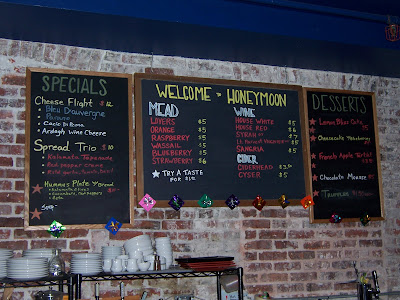 SPECIALS
Cheese Flight $12
Bleu D'auvergne
Ardagh Wine Cheere
Spread Trio $10
Kalamata Tapanade
Red pepper
Hummus Plate
WELCOME TO HONEYMOON
MEAD
LOVERS $5
ORANGE $5
RASPBERRY $5
WASSAIL $5
BLUEBERRY $5
STRAWBERRY $6
TRY A TASTE
FOR $12
WINE
HOUSE WHITE $5
HOUSE RED $6
SYRAH $7
LT. HARVEST $5
SANGRIA $5
CIDER
CYDERHEAD $3.50
CYSER $5
DESSERTS
Lemon Blues Cake
Cheesecake
French Apple Tart
Chocolate Mousse
Truffles